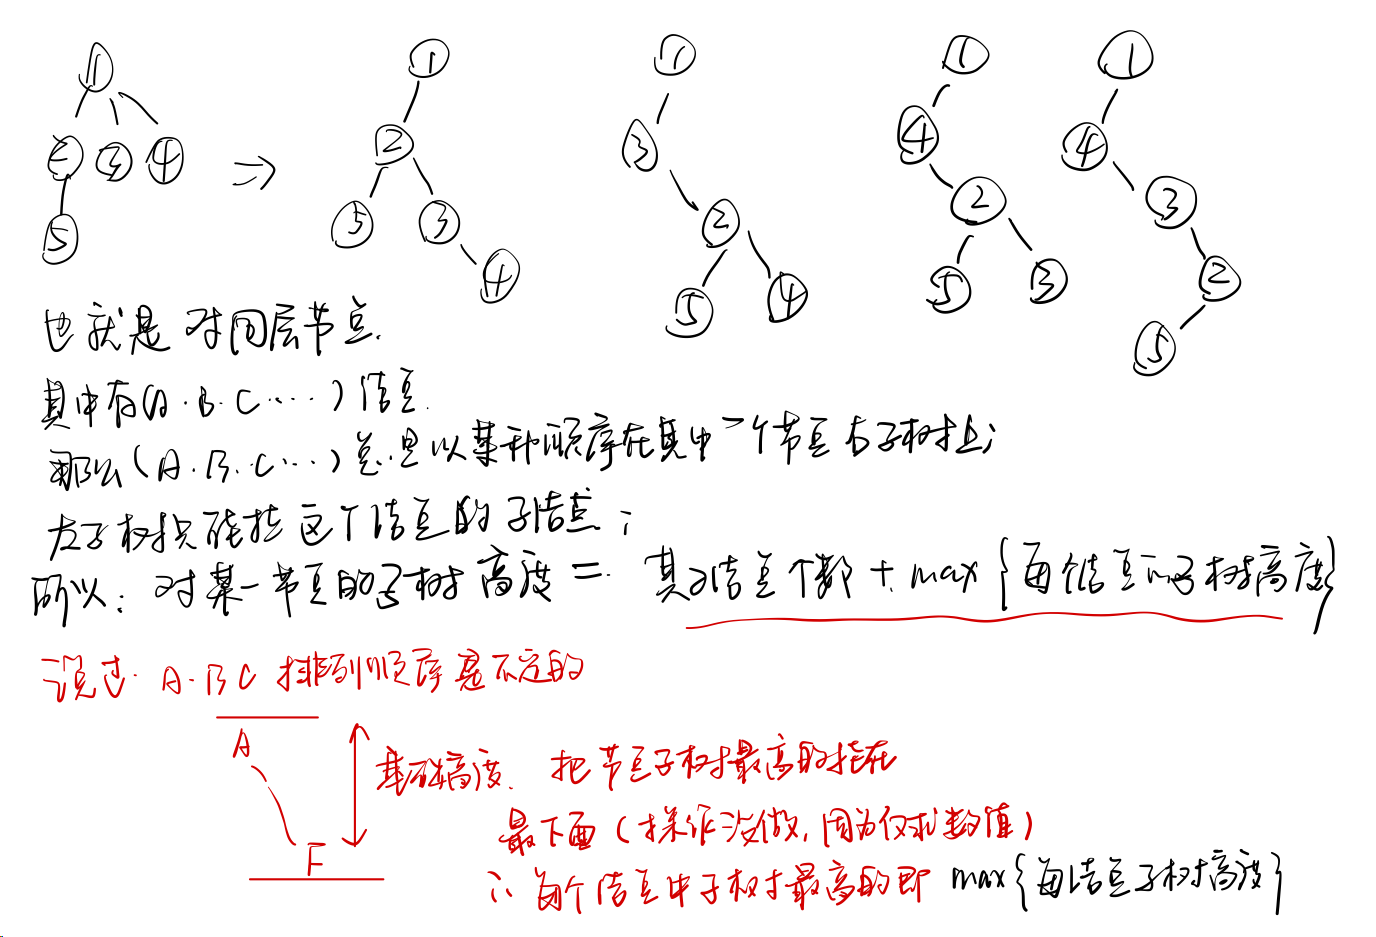 1 1 1 1 1
2 3 4 ⇒ 2 3 4 4
5 5 3 2 2 3
4 5 4 5 3 2
5
也就是对同层节点.
其中有(A.B.C....)结点.
那么(A.B.C...)总是以某种顺序在其中一个节点右子树上;
左子树只能挂这个结点的子结点;
所以: 对某一节点的子树高度 = 其子结点个数 + max{每个结点的子树高度}
说过. A.B.C 排列顺序是不定的
A
基础高度. 把节点子树最高的挂在
最下面(操作没做, 因为仅求数值)
F
∴ 每个结点中子树最高的即 max{每结点子树高度}